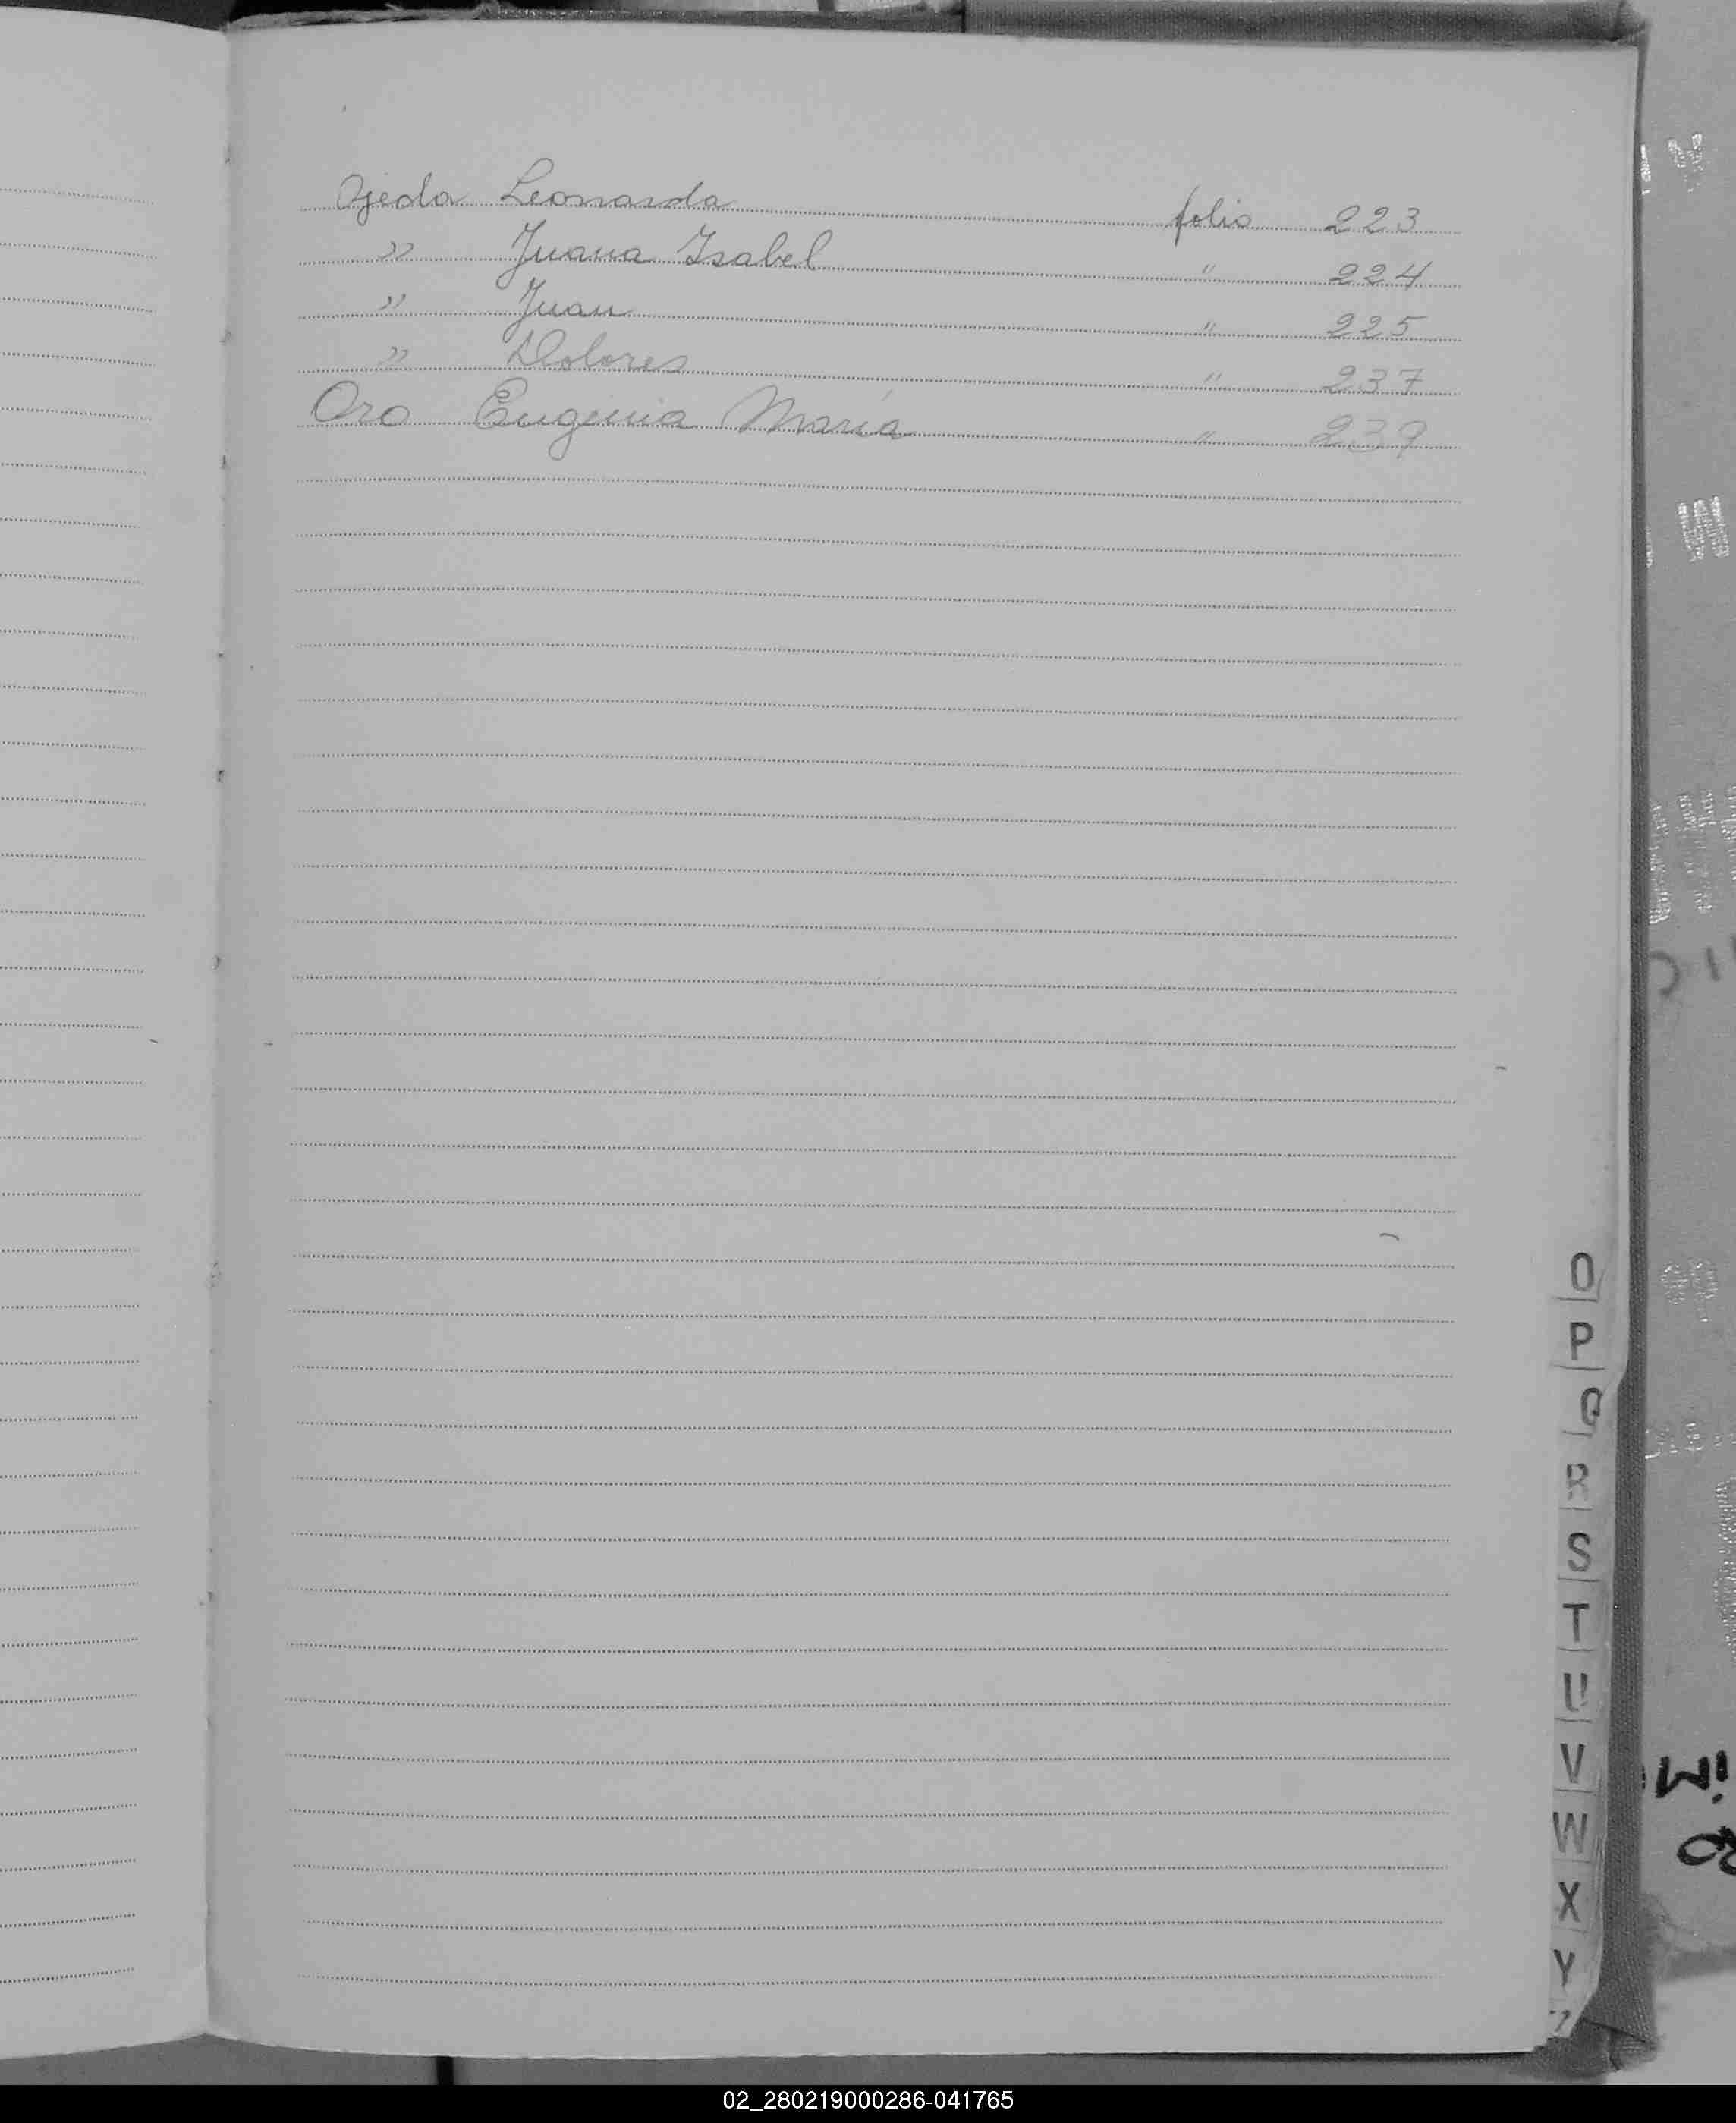 Ojeda Leonarda folio 223
" Juana Isabel " 224
" Juan " 225
" Dolores " 237
Oro Eugenia María " 239
O
P
Q
R
S
T
U
V
W
X
Y
02_280219000286-041765